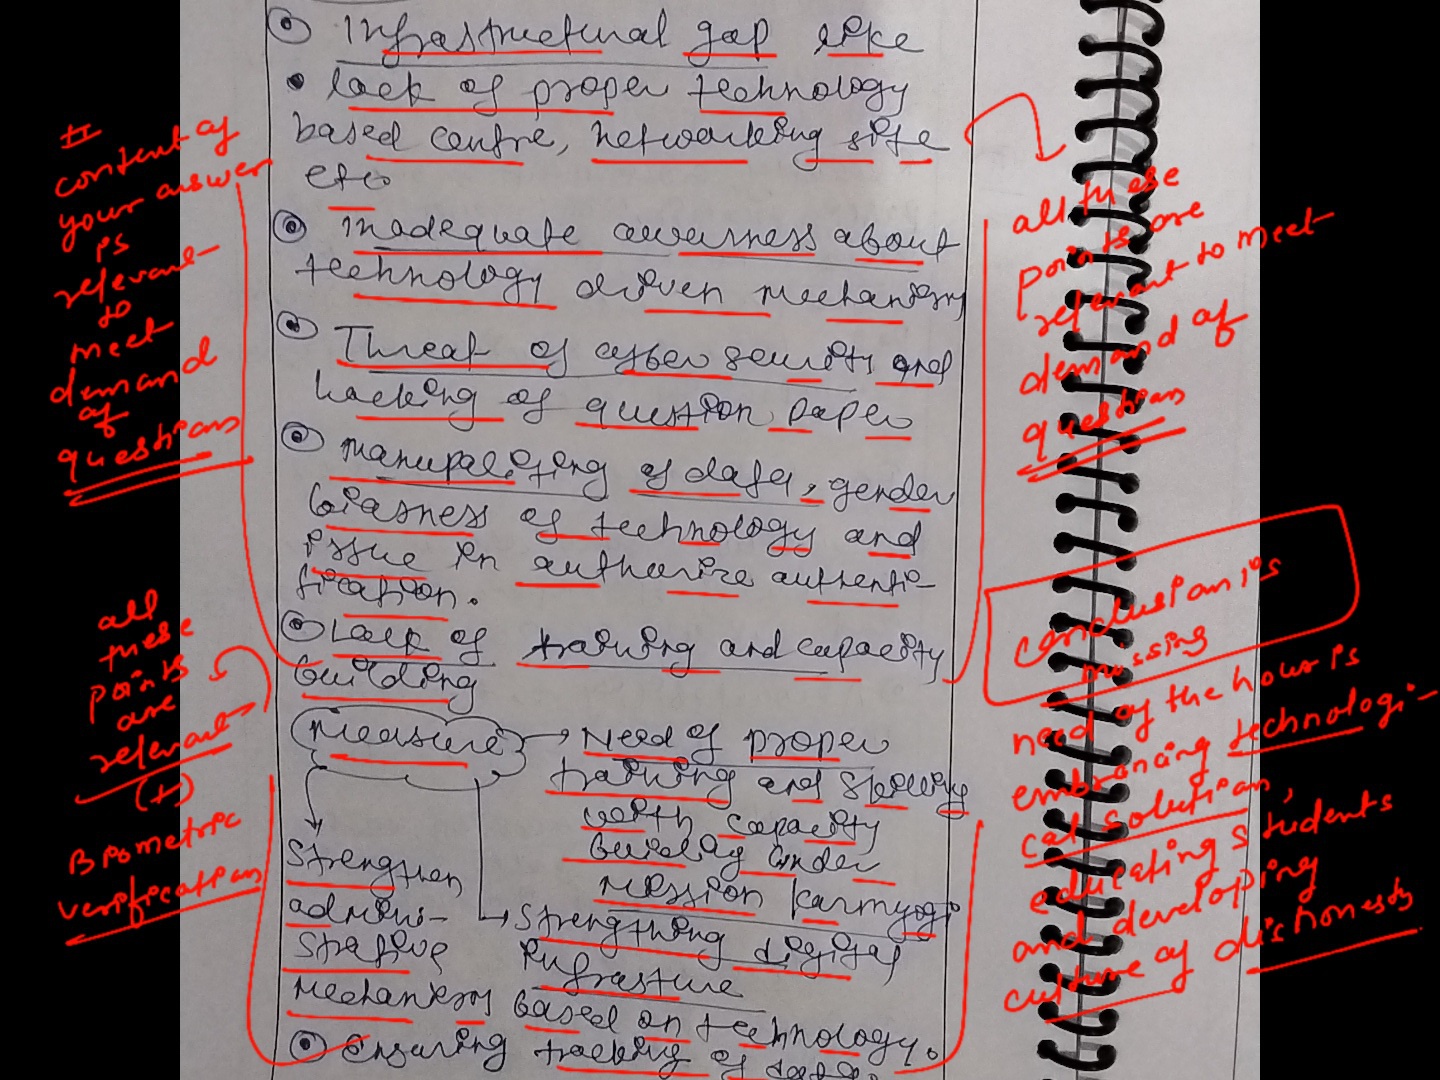 Infrastructural gap like
• lack of proper technology
based centre, networking site
etc
Inadequate awarness about
technology driven mechanism
Threat of cyber security and
hacking of question paper
manupaliting of data, gender
biasness of technology and
issue in authorize authenti-
fication.
Lack of training and capacity
building
Measure → Need of proper
training and skilling
with capacity
building under
mission karmyogi
Strengthen
admini-
strative
mechanism
Strengthning digital
infrasture
based on technology.
Ensuring tracking of data.
II
content of
your answer
is
relevant
to
meet
demand
of
questions
all
these
points
are
relevant
(+)
Biometric
verification
all these
points are
relevant to meet
demand of
questions
conclusion is
missing
need of the hour is
embrancing technologi-
cal solution,
educating students
and developing
culture of dishonesty